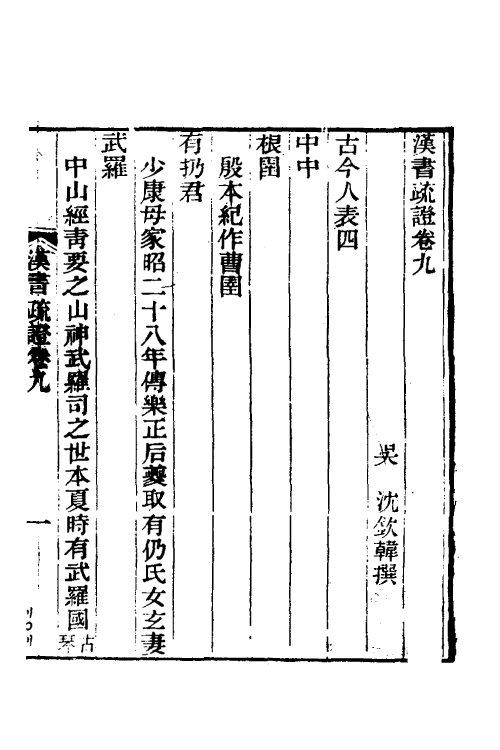 漢書疏證卷九
吳 沈欽韓撰
古今人表四
中中
根圉
殷本紀作曹圉
有扔君
少康母家昭二十八年傳樂正后夔取有仍氏女玄妻
武羅
中山經靑要之山神武羅司之世本夏時有武羅國
古琴
漢書疏證卷九
一